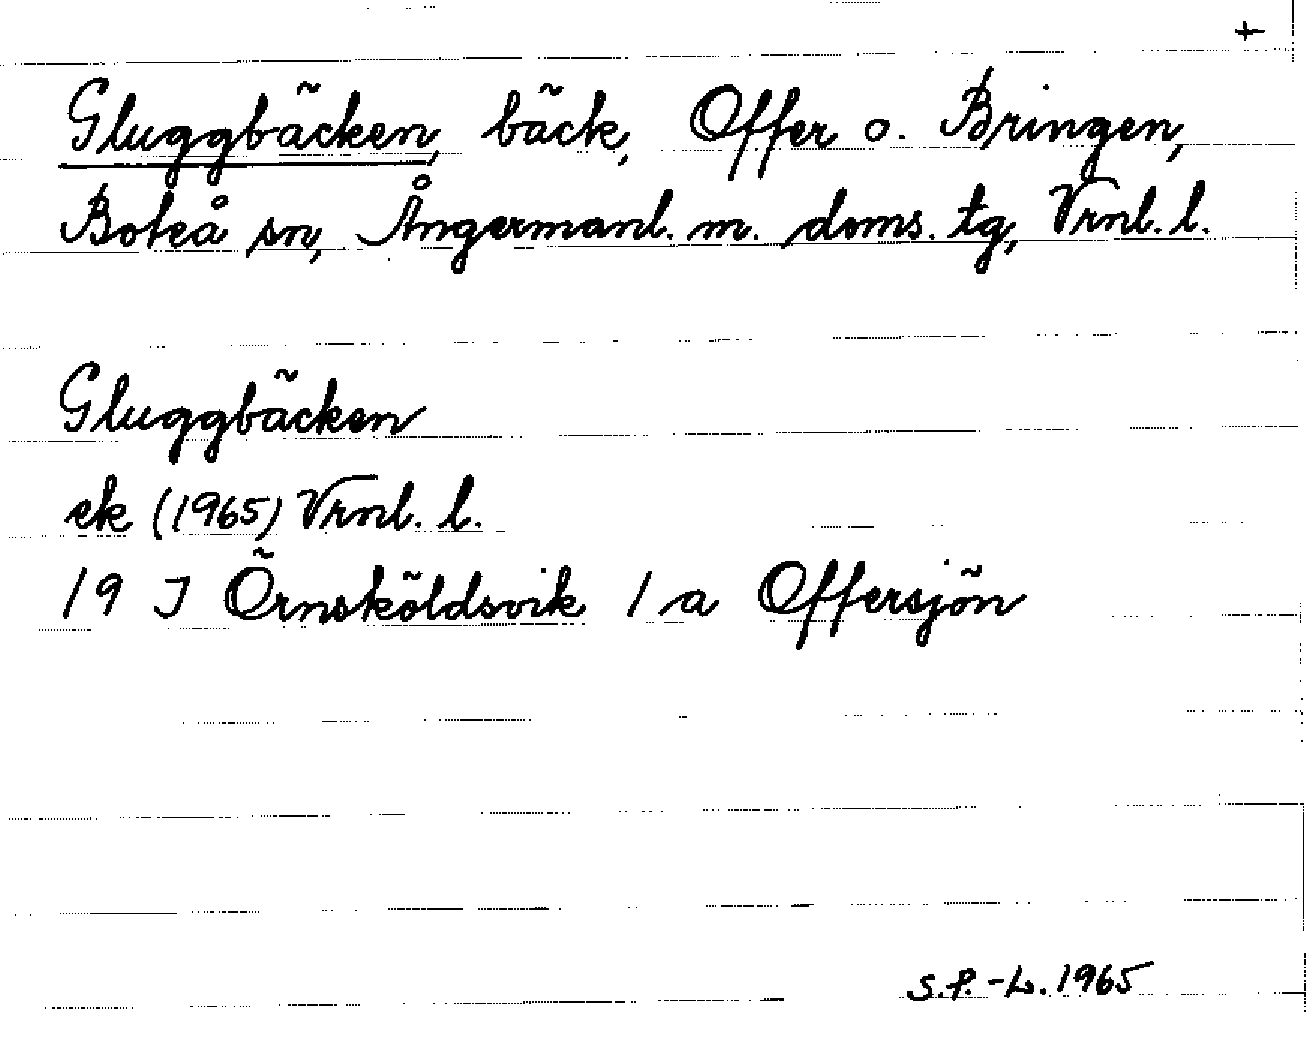 +
Gluggbäcken, bäck, Offer o. Bringen,
Boteå sn, Ångermanl. m. doms. tg, Vrnl. l.
Gluggbäcken
ek (1965) Vrnl. l.
19 J Örnsköldsvik 1 a Offersjön
S.P.-L. 1965